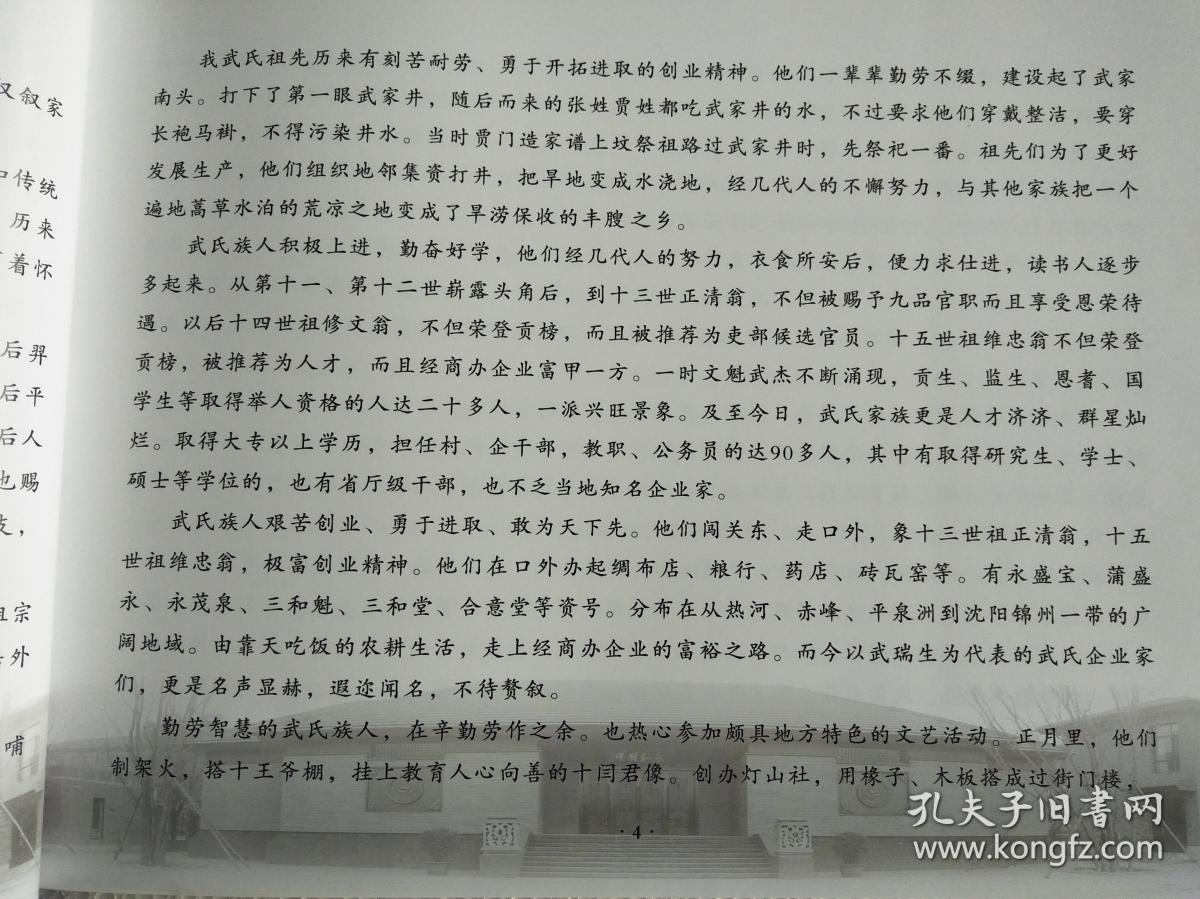 又叙家
和传统
历来
着怀
后羿
后平
后人
也赐
支，
祖宗
外
哺
我武氏祖先历来有刻苦耐劳、勇于开拓进取的创业精神。他们一辈辈勤劳不缀，建设起了武家
南头。打下了第一眼武家井，随后而来的张姓贾姓都吃武家井的水，不过要求他们穿戴整洁，要穿
长袍马褂，不得污染井水。当时贾门造家谱上坟祭祖路过武家井时，先祭祀一番。祖先们为了更好
发展生产，他们组织地邻集资打井，把旱地变成水浇地，经几代人的不懈努力，与其他家族把一个
遍地蒿草水泊的荒凉之地变成了旱涝保收的丰腴之乡。
武氏族人积极上进，勤奋好学，他们经几代人的努力，衣食所安后，便力求仕进，读书人逐步
多起来。从第十一、第十二世崭露头角后，到十三世正清翁，不但被赐予九品官职而且享受恩荣待
遇。以后十四世祖修文翁，不但荣登贡榜，而且被推荐为吏部候选官员。十五世祖维忠翁不但荣登
贡榜，被推荐为人才，而且经商办企业富甲一方。一时文魁武杰不断涌现，贡生、监生、恩耆、国
学生等取得举人资格的人达二十多人，一派兴旺景象。及至今日，武氏家族更是人才济济、群星灿
烂。取得大专以上学历，担任村、企干部，教职、公务员的达90多人，其中有取得研究生、学士、
硕士等学位的，也有省厅级干部，也不乏当地知名企业家。
武氏族人艰苦创业、勇于进取、敢为天下先。他们闯关东、走口外，象十三世祖正清翁，十五
世祖维忠翁，极富创业精神。他们在口外办起绸布店、粮行、药店、砖瓦窑等。有永盛宝、蒲盛
永、永茂泉、三和魁、三和堂、合意堂等资号。分布在从热河、赤峰、平泉洲到沈阳锦州一带的广
阔地域。由靠天吃饭的农耕生活，走上经商办企业的富裕之路。而今以武瑞生为代表的武氏企业家
们，更是名声显赫，遐迩闻名，不待赘叙。
勤劳智慧的武氏族人，在辛勤劳作之余。也热心参加颇具地方特色的文艺活动。正月里，他们
制架火，搭十王爷棚，挂上教育人心向善的十闫君像。创办灯山社，用椽子、木板搭成过街门楼，
·4·
孔夫子旧书网
www.kongfz.com